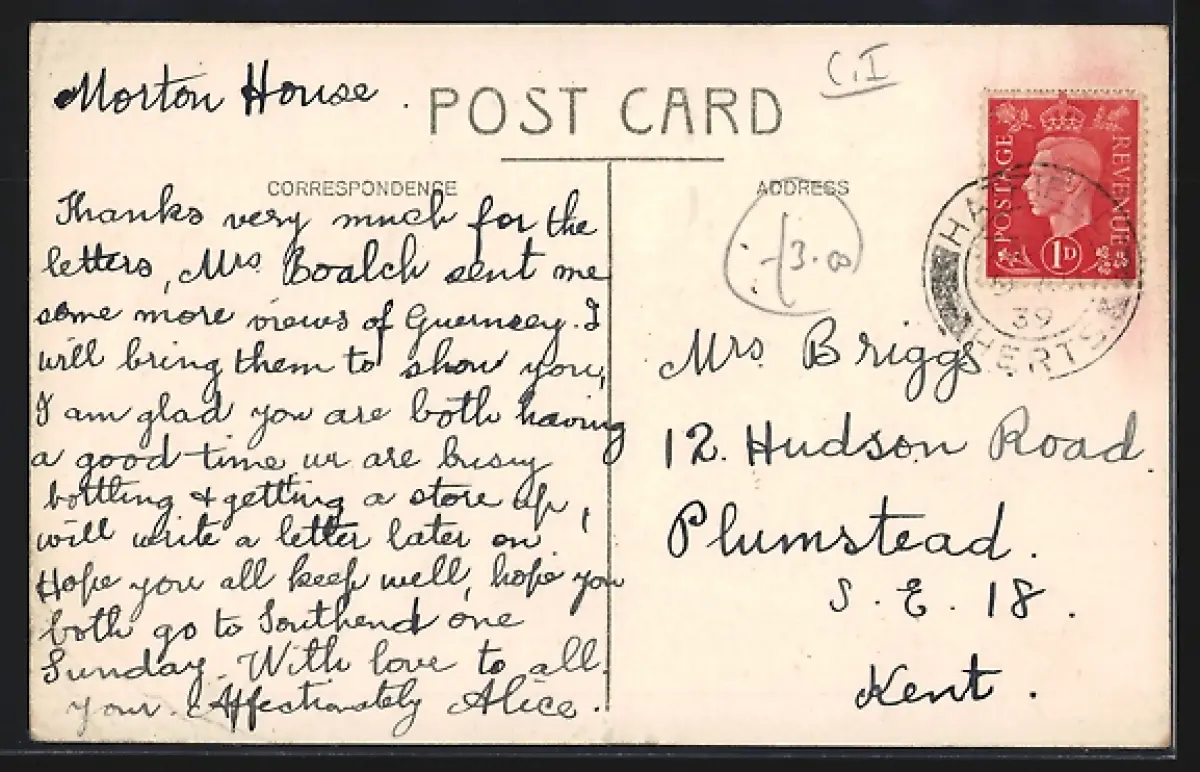 Morton House.
POST CARD
C.I
CORRESPONDENCE
Thanks very much for the
letters, Mrs Boalch sent me
some more views of Guernsey. I
will bring them to show you,
I am glad you are both having
a good time, we are busy
bottling & getting a store up,
will write a letter later on.
Hope you all keep well, hope you
both go to Southend one
Sunday. With love to all.
your Affectionately Alice.
ADDRESS
3.00
POSTAGE
REVENUE
1D
39
HERTS
Mrs. Briggs
12. Hudson Road.
Plumstead.
S.E. 18.
Kent.